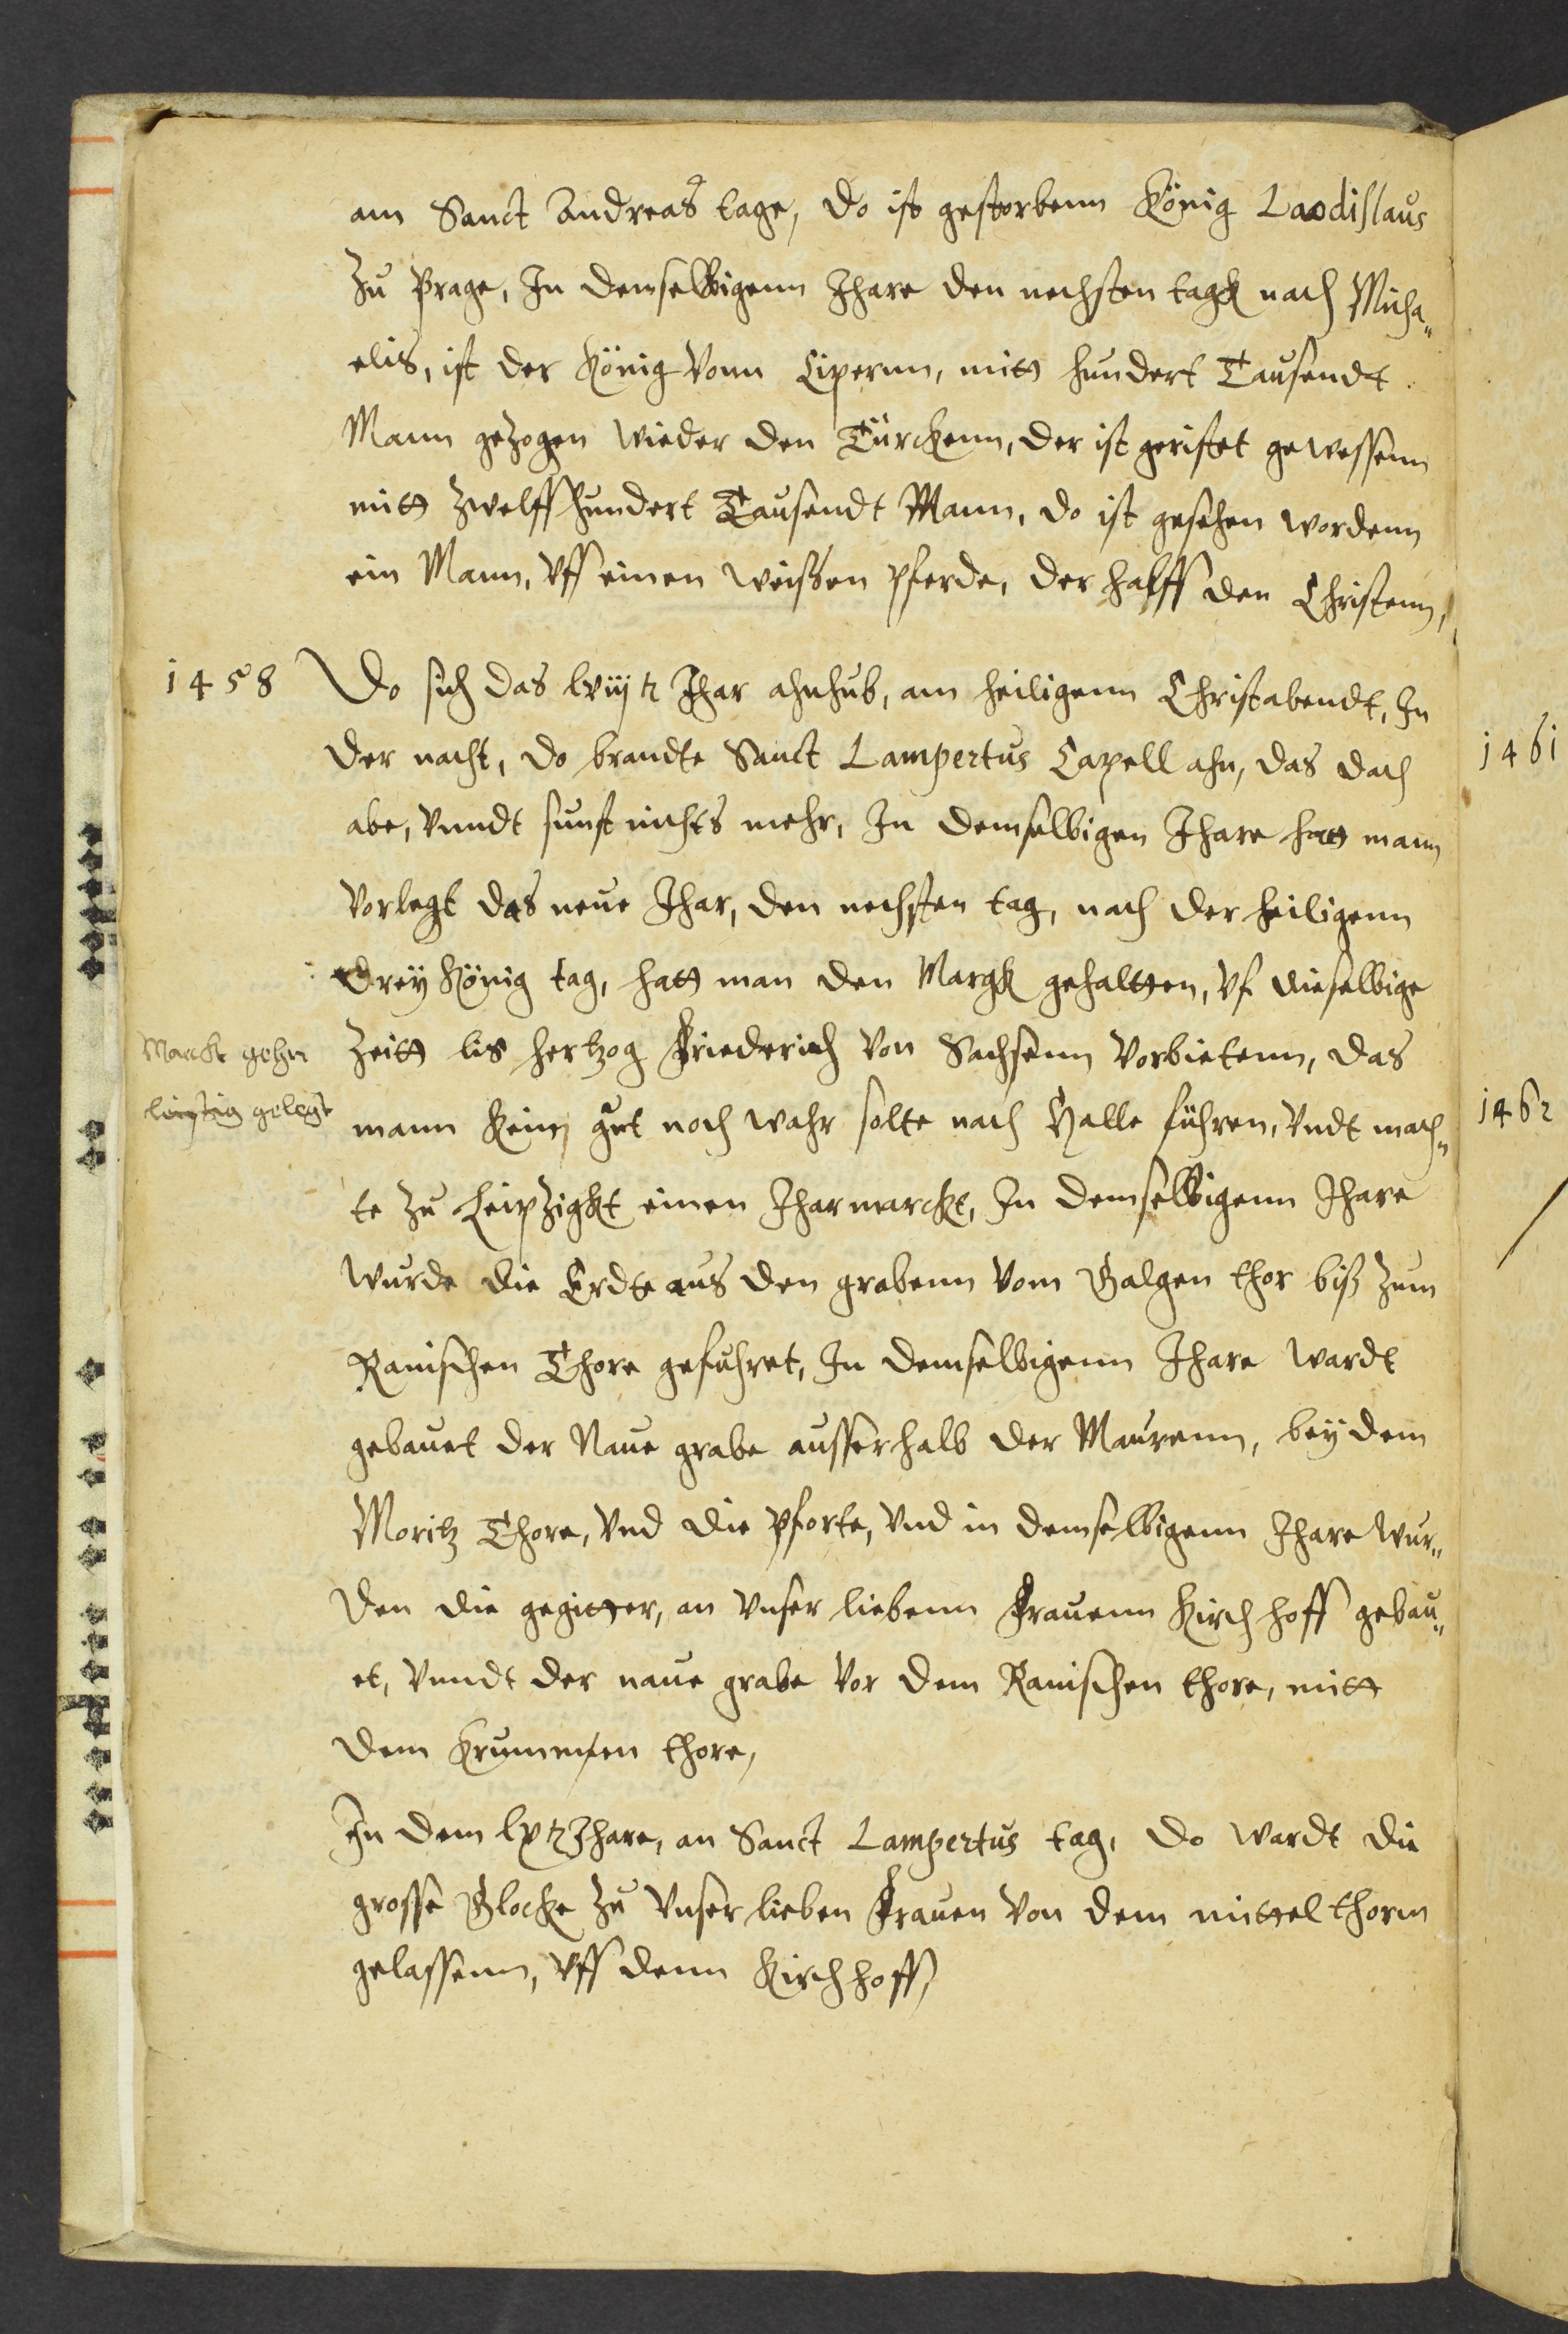 am Sanct Andreas tage, do ist gestorbenn König Laodislaus
zu Prage, In demselbigenn Jhare den nechsten tagk nach Micha„
elis, ist der König vonn Cipernn, mitt hundert Tausendt
Mann gezogen wieder den Türckenn, der ist geristet gewessenn
mitt zwelffhundert Tausendt Mann, do ist gesehen wordenn
ein Mann, vff einen weissen pferde, der halff den Christenn,
1458 Do sich das lviij tz Jhar ahnhub, am heiligenn Christabendt, In
der nacht, do brandte Sanct Lampertus Capell ahn, das dach
abe, vnndt sunst nichts mehr, In demselbigen Jhare hatt mann
vorlegt das neue Jhar, den nechsten tag, nach der heiligenn
drey König tag, hatt man den Margk gehaltten, vf dieselbige
zeitt lis hertzog Friederich von Sachsenn vorbietenn, das
Marckt gehn
leiptzig gelegt
mann kein gut noch wahr solte nach Halle führen, vndt mach„
te zu Leipzigkt einen Jharmarckt, In demselbigenn Jhare
wurde die Erdte aus den grabenn vom Galgen thor biß zum
Ranischen Thore gefuhret, In demselbigenn Jhare wardt
gebauet der Naue grabe ausserhalb der Maurenn, bey dem
Moritz Thore, vnd die pforte, vnd in demselbigenn Jhare wur„
den die gegitter, an vnser liebenn Frauenn Kirchhoff gebau„
et, vnndt der naue grabe vor dem Ranischen thore, mitt
dem Krummen thore,
In dem lx tz Jhare, an Sanct Lampertus tag, do wardt die
grosse Glocke zu vnser lieben Frauen von dem mittel thorm
gelassenn, vff denn Kirchhoff,
1461
1462